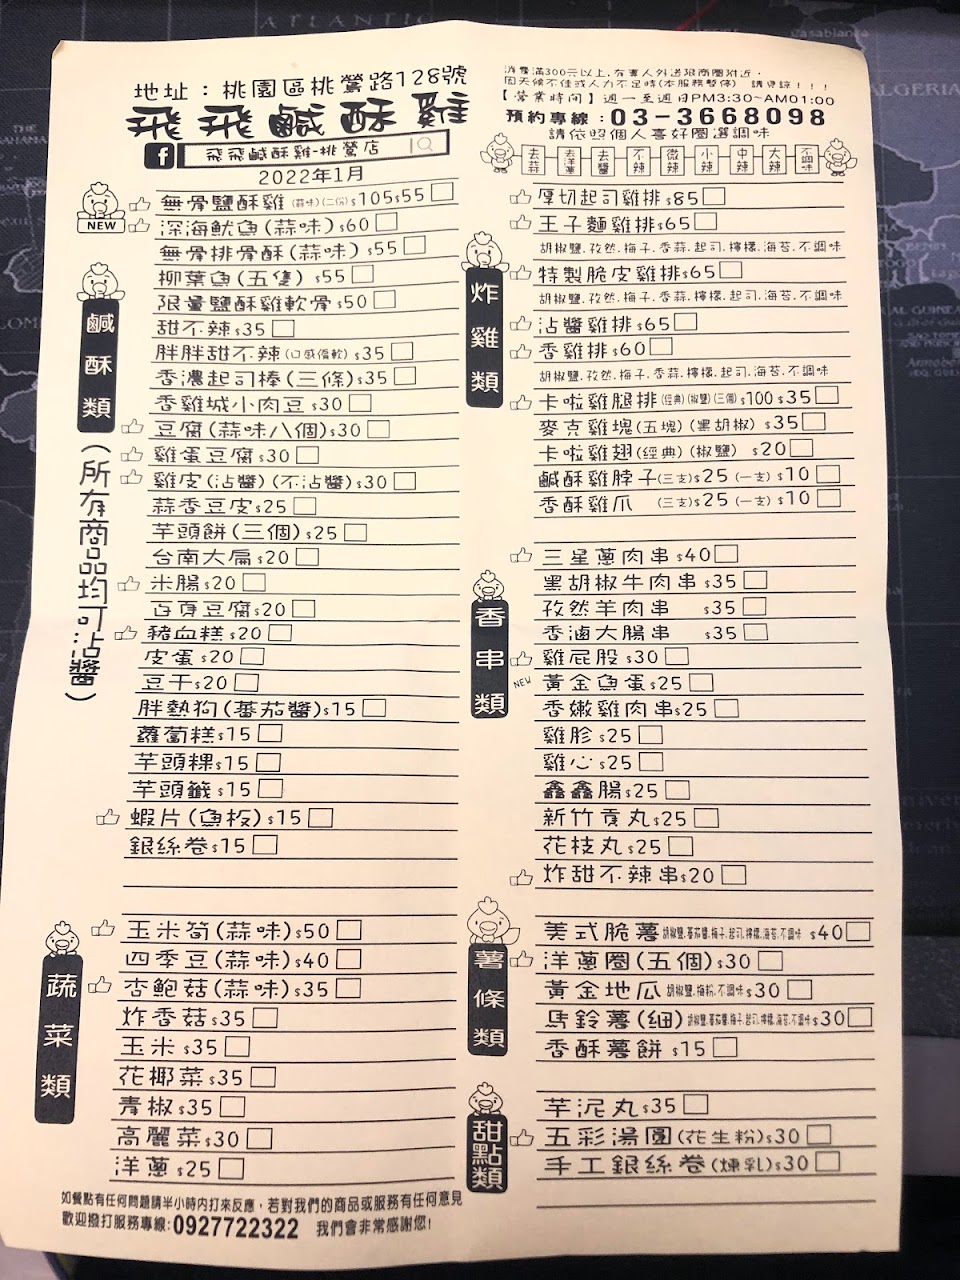 地址：桃園區桃鶯路128號
飛飛鹹酥雞
f 飛飛鹹酥雞-桃鶯店
2022年1月
消費滿300元以上,有專人外送限商圈附近，
因天候不佳或人力不足時(本服務暫停) 請見諒!!!
【營業時間】週一至週日PM3:30~AM01:00
預約專線：03-3668098
請依照個人喜好圈選調味
去蒜 去洋蔥 去醬 不辣 微辣 小辣 中辣 大辣 不調味
NEW
鹹酥類
(所有商品均可沾醬)
無骨鹽酥雞(蒜味)(二份)$105 $55
深海魷魚(蒜味)$60
無骨排骨酥(蒜味)$55
柳葉魚(五隻)$55
限量鹽酥雞軟骨$50
甜不辣$35
胖胖甜不辣(口感偏軟)$35
香濃起司棒(三條)$35
香雞城小肉豆$30
豆腐(蒜味八個)$30
雞蛋豆腐$30
雞皮(沾醬)(不沾醬)$30
蒜香豆皮$25
芋頭餅(三個)$25
台南大扁$20
米腸$20
百頁豆腐$20
豬血糕$20
皮蛋$20
豆干$20
胖熱狗(蕃茄醬)$15
蘿蔔糕$15
芋頭粿$15
芋頭籤$15
蝦片(魚板)$15
銀絲卷$15
蔬菜類
玉米筍(蒜味)$50
四季豆(蒜味)$40
杏鮑菇(蒜味)$35
炸香菇$35
玉米$35
花椰菜$35
青椒$35
高麗菜$30
洋蔥$25
炸雞類
厚切起司雞排$85
王子麵雞排$65
胡椒鹽.孜然.梅子.香蒜.起司.檸檬.海苔.不調味
特製脆皮雞排$65
胡椒鹽.孜然.梅子.香蒜.檸檬.起司.海苔.不調味
沾醬雞排$65
香雞排$60
胡椒鹽.孜然.梅子.香蒜.檸檬.起司.海苔.不調味
卡啦雞腿排(經典)(椒鹽)(三個)$100 $35
麥克雞塊(五塊)(黑胡椒)$35
卡啦雞翅(經典)(椒鹽) $20
鹹酥雞脖子(三支)$25 (一支)$10
香酥雞爪 (三支)$25 (一支)$10
香串類
三星蔥肉串$40
黑胡椒牛肉串$35
孜然羊肉串 $35
香滷大腸串 $35
雞屁股$30
NEW 黃金魚蛋$25
香嫩雞肉串$25
雞胗$25
雞心$25
鑫鑫腸$25
新竹貢丸$25
花枝丸$25
炸甜不辣串$20
薯條類
美式脆薯 胡椒鹽.蕃茄醬.梅子.起司.檸檬.海苔.不調味 $40
洋蔥圈(五個)$30
黃金地瓜 胡椒鹽.梅粉.不調味$30
馬鈴薯(細)胡椒鹽.蕃茄醬.梅子.起司.檸檬.海苔.不調味$30
香酥薯餅 $15
甜點類
芋泥丸$35
五彩湯圓(花生粉)$30
手工銀絲卷(煉乳)$30
如餐點有任何問題請半小時內打來反應，若對我們的商品或服務有任何意見
歡迎撥打服務專線:0927722322 我們會非常感謝您!